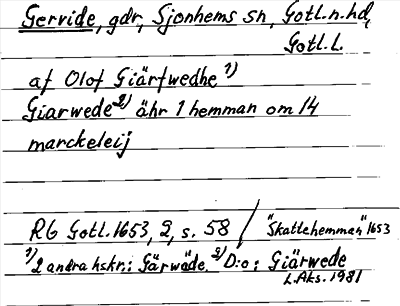 Gervide, gdr, Sjonhems sn, Gotl. n. hd,
Gotl. l.
af Olof Giärfwedhe 1)
Giarwede 2) ähr 1 hemman om 14
marckeleij
RG Gotl. 1653, 2, s. 58 / "Skattehemman" 1653
1) 2 andra hskr.: Gärwäde. 2) D:o: Giärwede
L. Aks. 1981